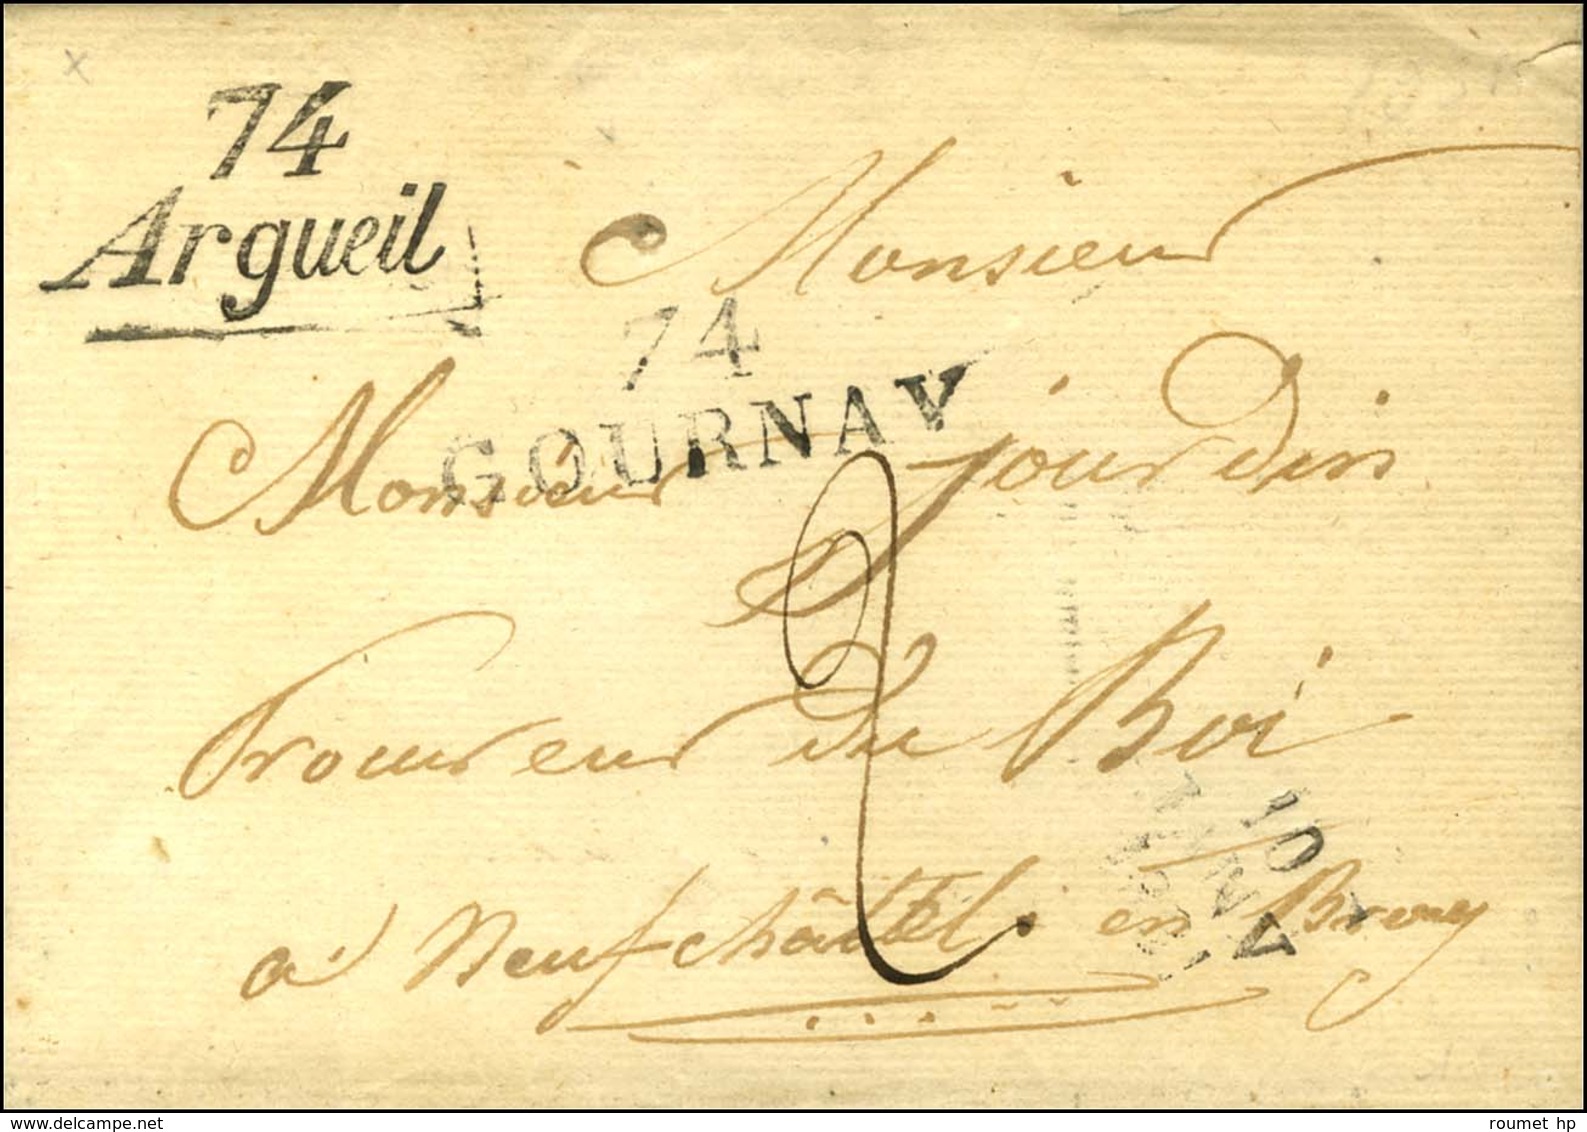 74
Argueil
Monsieur
74
GOURNAY
Monsieur Jourdin
2
Procureur du Roi
10
à Neufchâtel en Bray
roumet hp